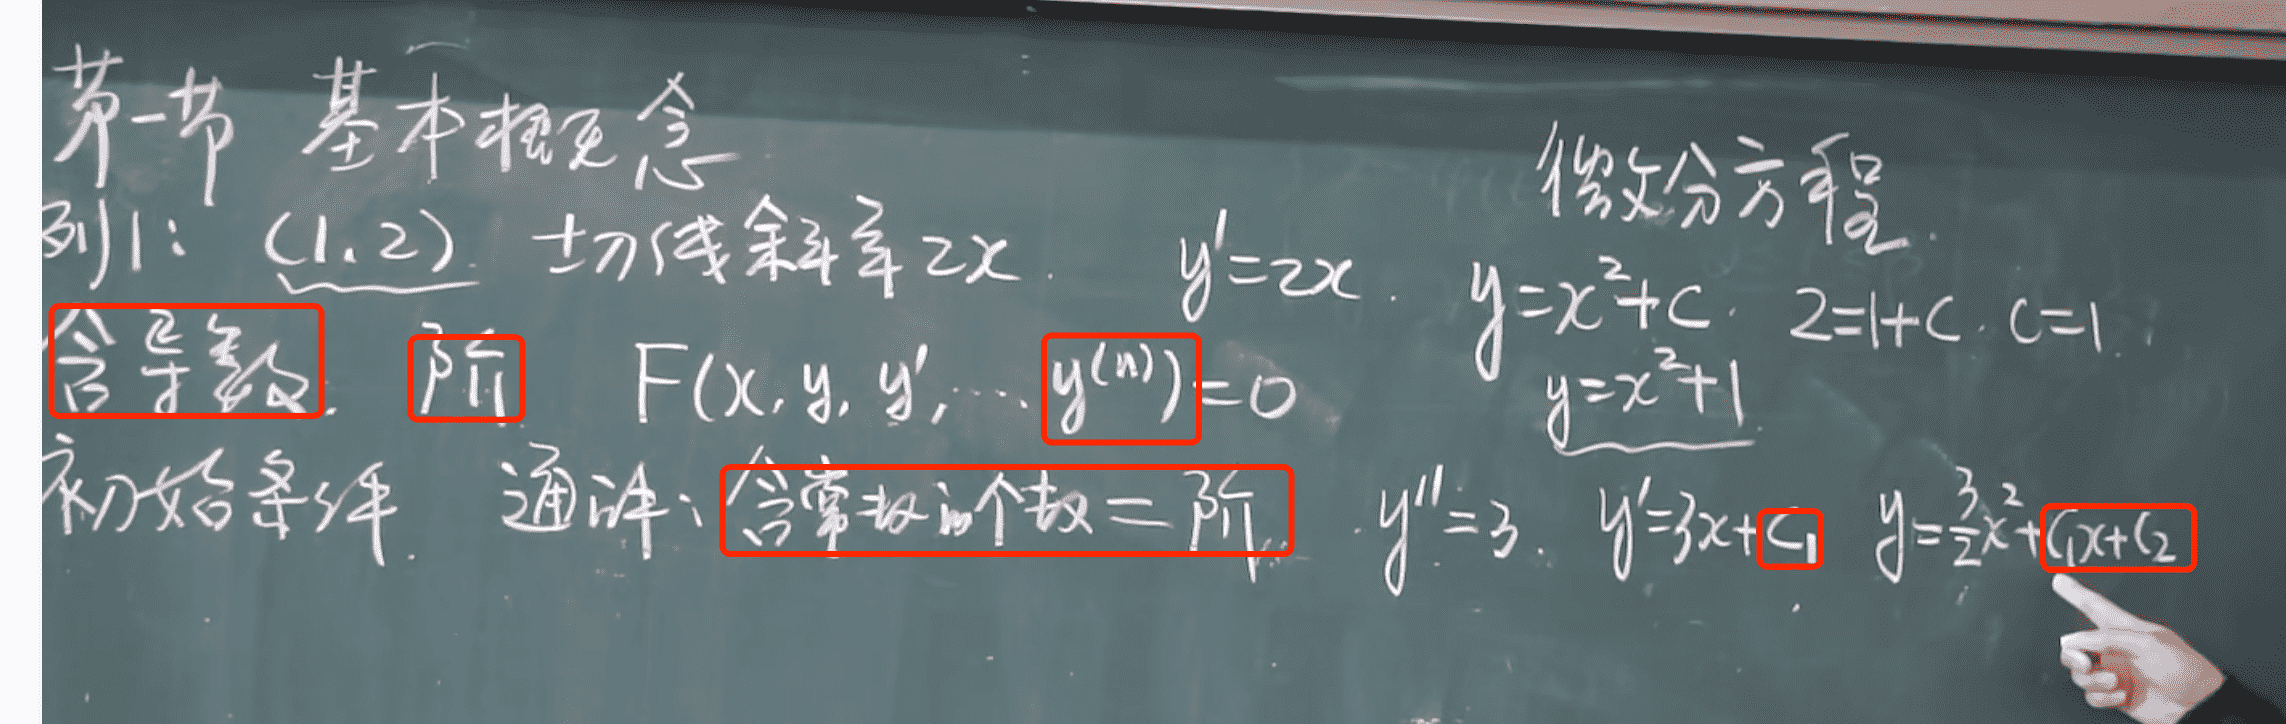 第一节 基本概念
微分方程.
例1: (1.2) 切线斜率2x. y'=2x. y=x²+C. 2=1+C. C=1.
含导数. 阶 F(x, y, y', … y⁽ⁿ⁾)=0 y=x²+1
初始条件. 通解: 含常数的个数=阶. y''=3. y'=3x+C₁ y=3/2x²+C₁x+C₂